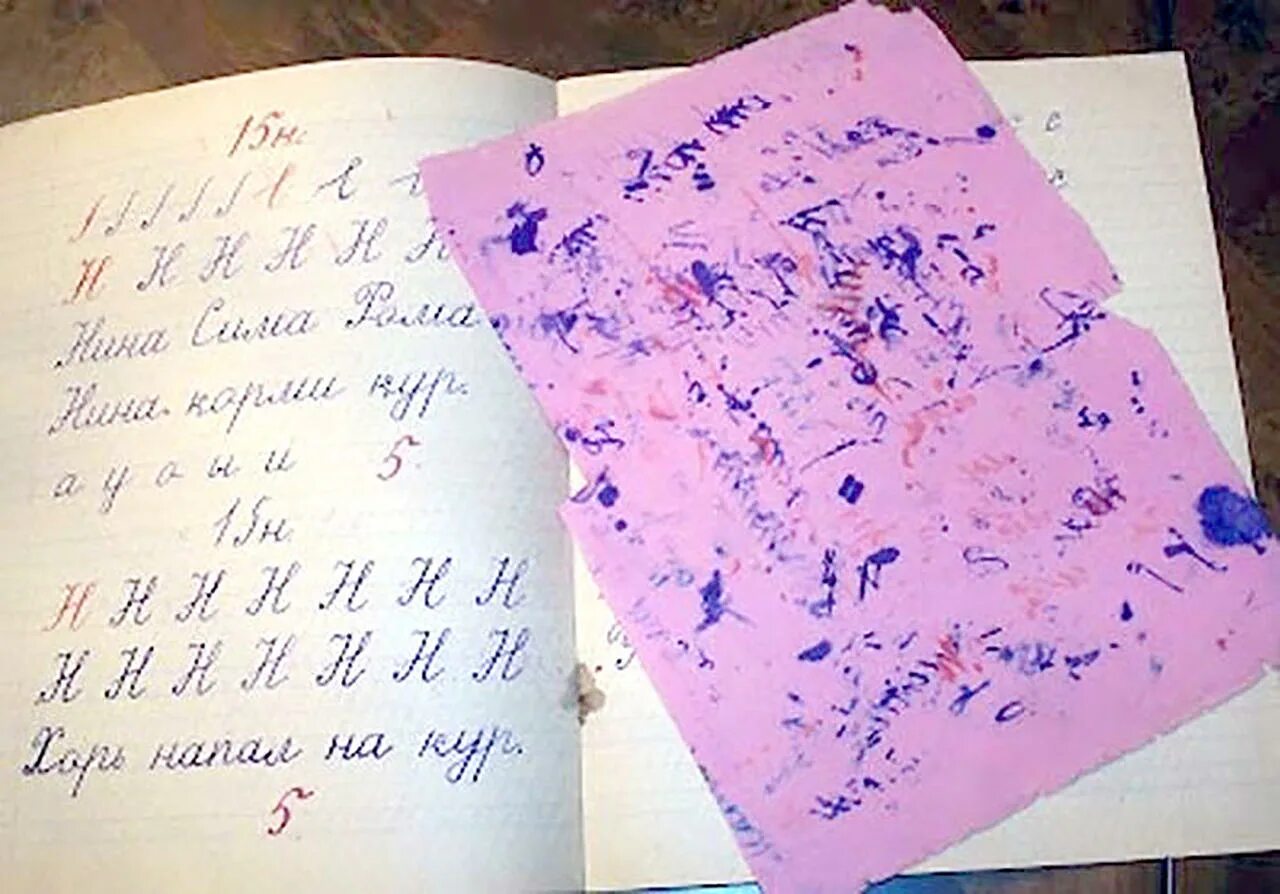 15н.
Н Н Н Н Н Н
Нина Сима Рома
Нина корми кур.
а у о ы и 5
15н.
Н Н Н Н Н Н Н
Н Н Н Н Н Н Н
Хорь напал на кур.
5